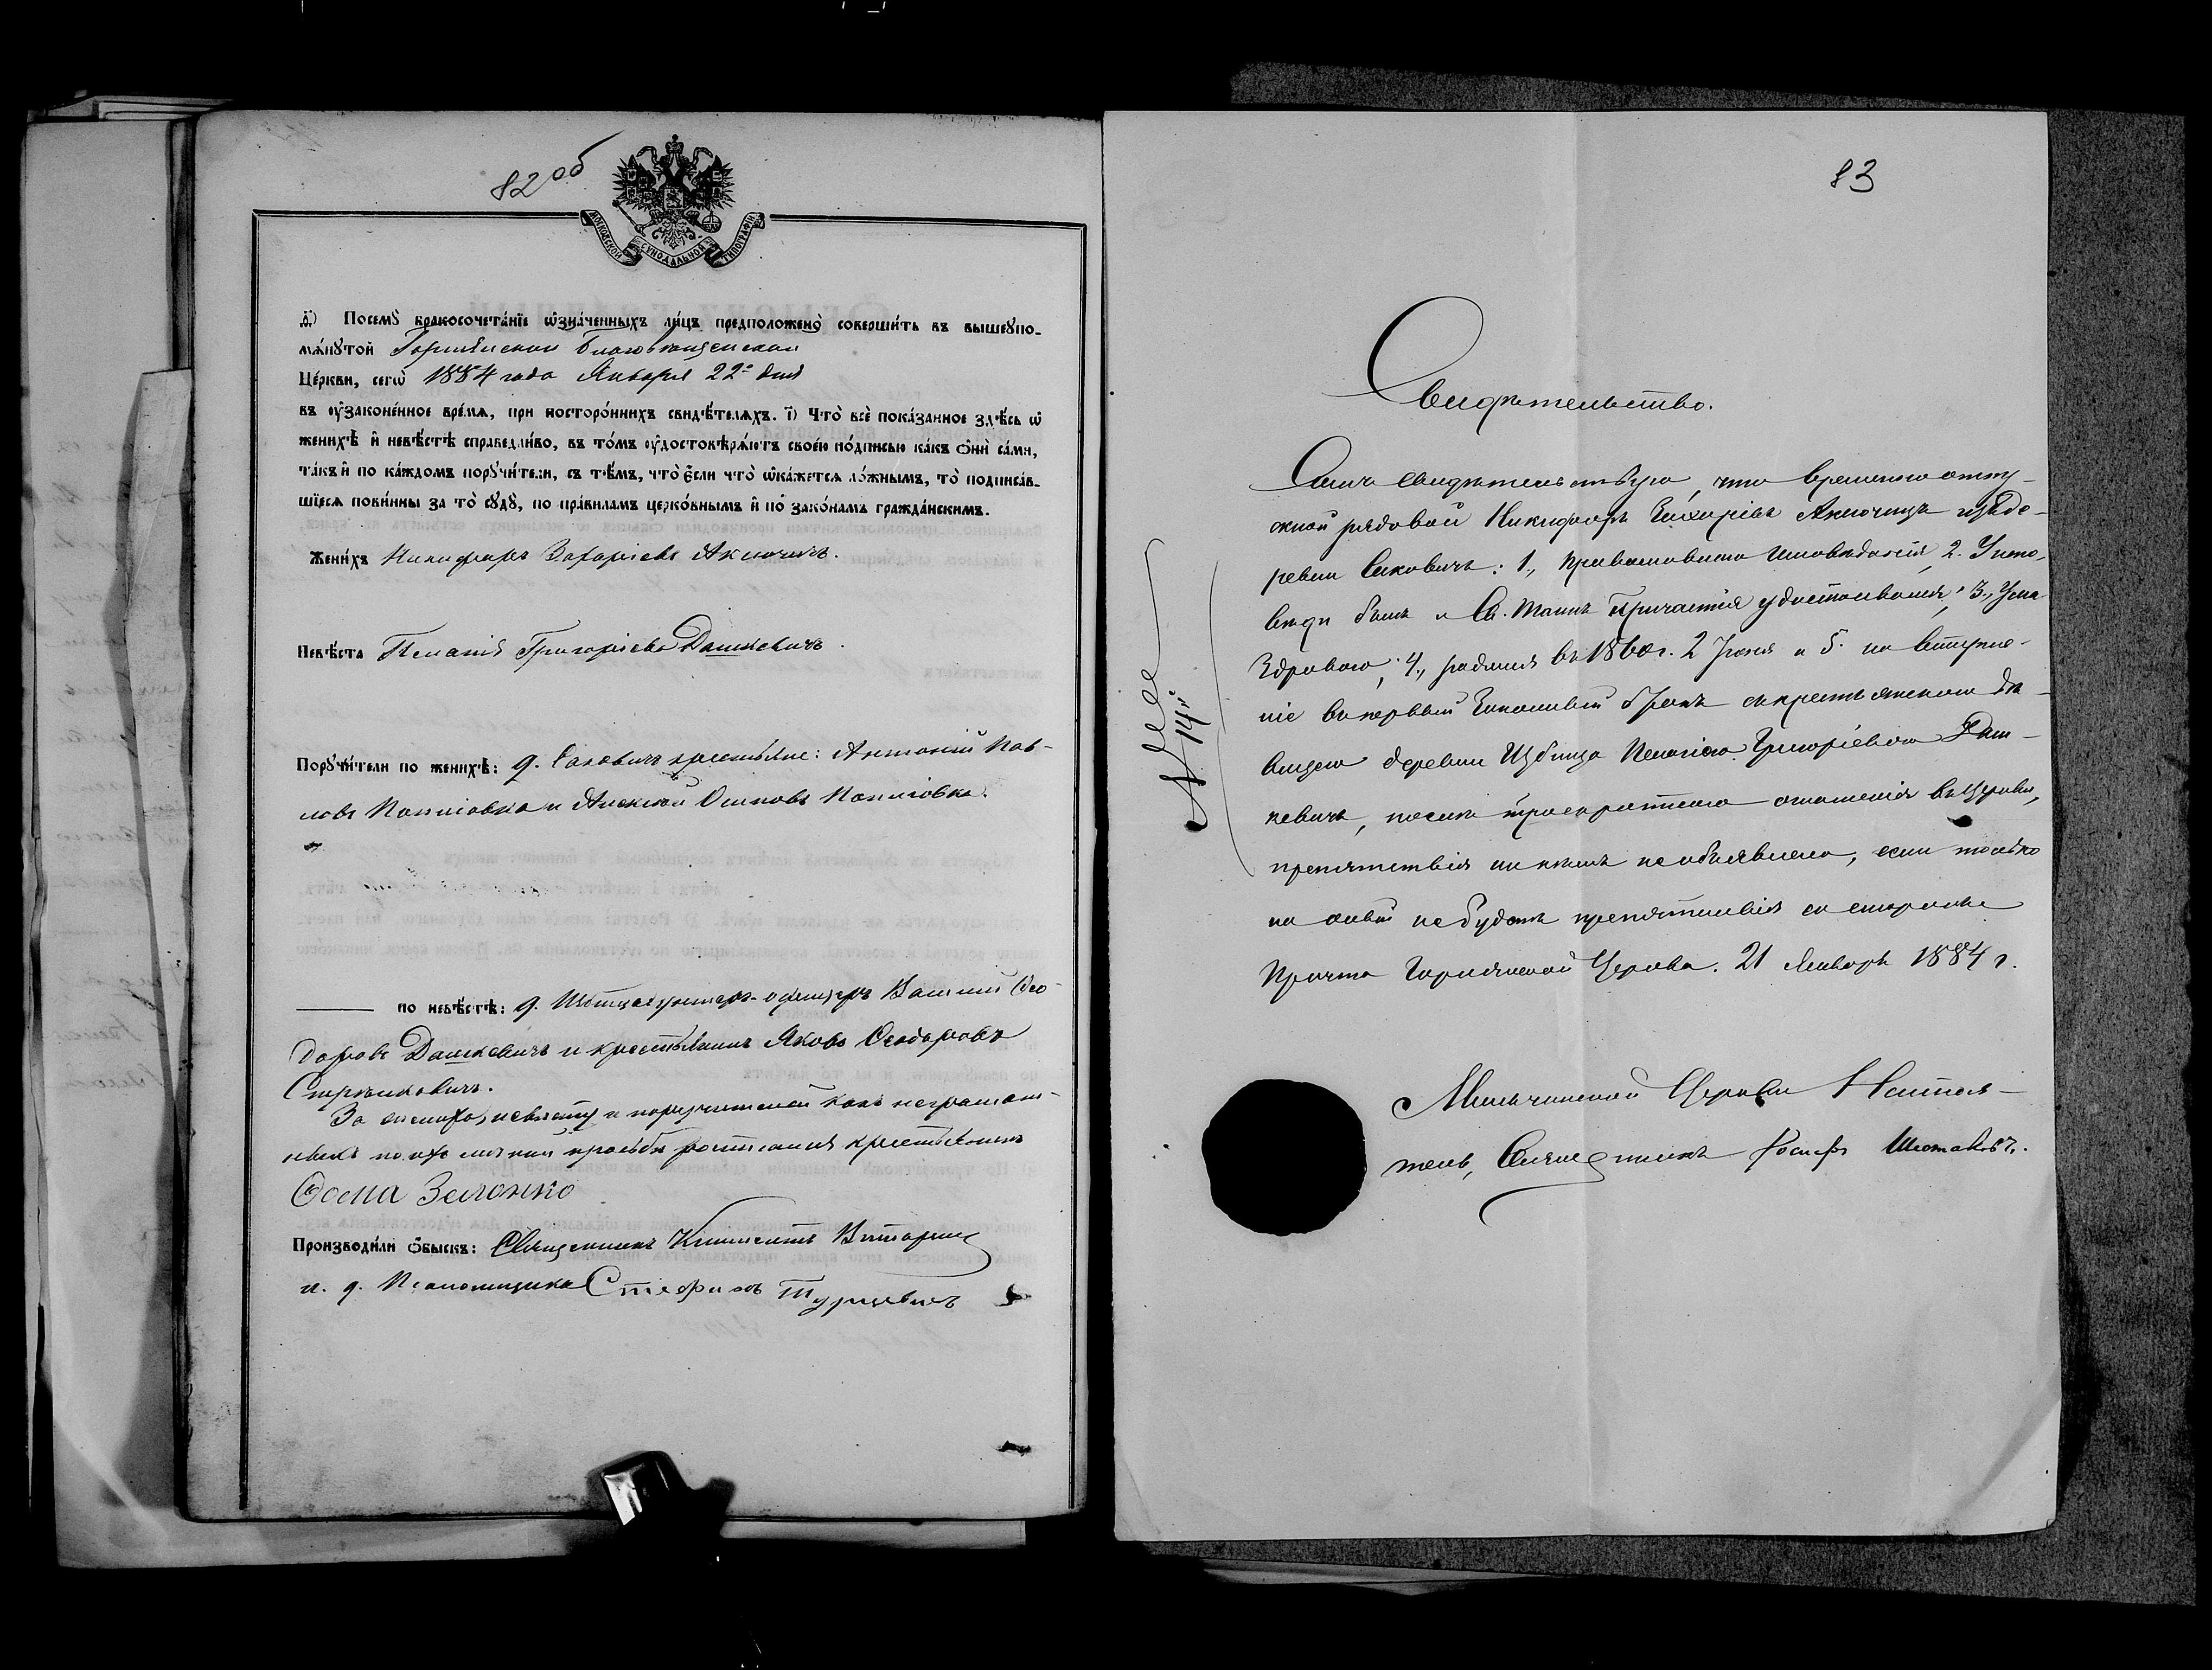 82 об
МОСКОВСКОЙ СѴНОДАЛЬНОЙ ТИПОГРАФІИ
ѳ҃) Посемꙋ̀ бракосочета́нїе ѡ҆зна́ченныхъ ли́цъ предположено̀ соверши́ть въ вышеꙋпо-
мѧ́нꙋтой Горнянской Благовѣщенской
Це́ркви, сегѡ̀ 1884 года Января 22º дня
въ ᲂу҆зако́ненное вре́мѧ, при посторо́ннихъ свидѣ́телѧхъ. і҃) Что̀ всѐ пока́занное здѣ́сь ѡ҆
женихѣ̀ и҆ невѣ́стѣ справедли́во, въ то́мъ ᲂу҆достовѣрѧ́ютъ свое́ю по́дписью ка́къ ѻ҆нѝ са́ми,
та́къ и҆ по ка́ждомъ порꙋчи́тели, съ тѣ́мъ, что̀ є҆́сли что̀ ѡ҆ка́жетсѧ ло́жнымъ, то̀ подписа́в-
шїесѧ пови́нны за то̀ сꙋдꙋ̀, по пра́виламъ церко́внымъ и҆ по зако́намъ гражда́нскимъ.
Жени́хъ Никифоръ Захаріевъ Аксючицъ.
Невѣ́ста Пелагія Григоріева Дашкевичъ.
Порꙋчи́тели по женихѣ̀: д. Саковичъ крестьяне: Антоній Пав-
ловъ и Алексѣй Осиповъ
по невѣ́стѣ: д. унтеръ-офицеръ Василій Ѳео-
доровъ Дашкевичъ и крестьянинъ Яковъ Ѳеодоровъ
За жениха, невѣсту и поручителей какъ неграмот-
ныхъ по ихъ личной просьбѣ росписался крестьянинъ
Ѳома Зелонко
Производи́ли ѻ҆́быскъ: Священникъ Климентъ
и. д. Псаломщика Стефанъ Турцевичъ
83
№ 14й
Свидѣтельство.
Симъ свидѣтельствую, что временно отпу-
скной рядовой Никифоръ Захаріевъ Аксючицъ изъ де-
ревни Саковичъ: 1., православнаго исповѣданія, 2. У испо-
вѣди былъ и Св. Таинъ Причастія удостоивался; 3., Ума
здраваго; 4., родился въ 1860 г. 2 Іюня и 5. на вступле-
ніе въ первый законный бракъ съ крестьянскою дѣ-
вицею деревни Избища Пелагіею Григоріевою Даш-
кевичъ, послѣ троекратнаго оглашенія въ Церкви,
препятствія ни кѣмъ не объявлено, если только
на оный не будетъ препятствія со стороны
Причта Горнянской Церкви. 21 Января 1884 г.
Церкви Настоя-
тель, Священникъ Іосифъ